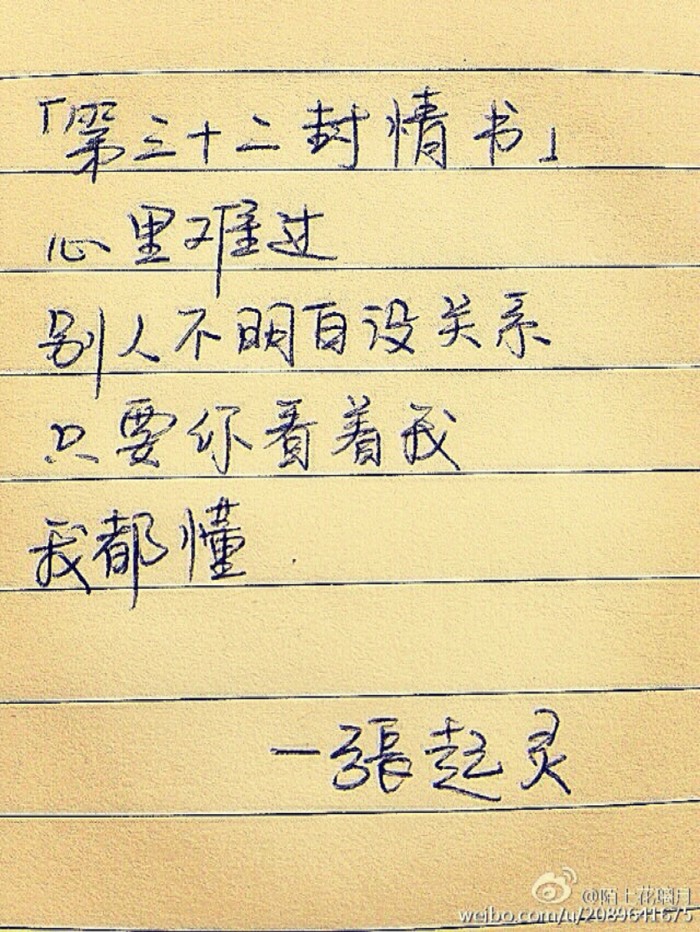 「第三十二封情书」
心里难过
别人不明白没关系
只要你看着我
我都懂
一張起灵
@陌上花璃月
weibo.com/u/2089641675